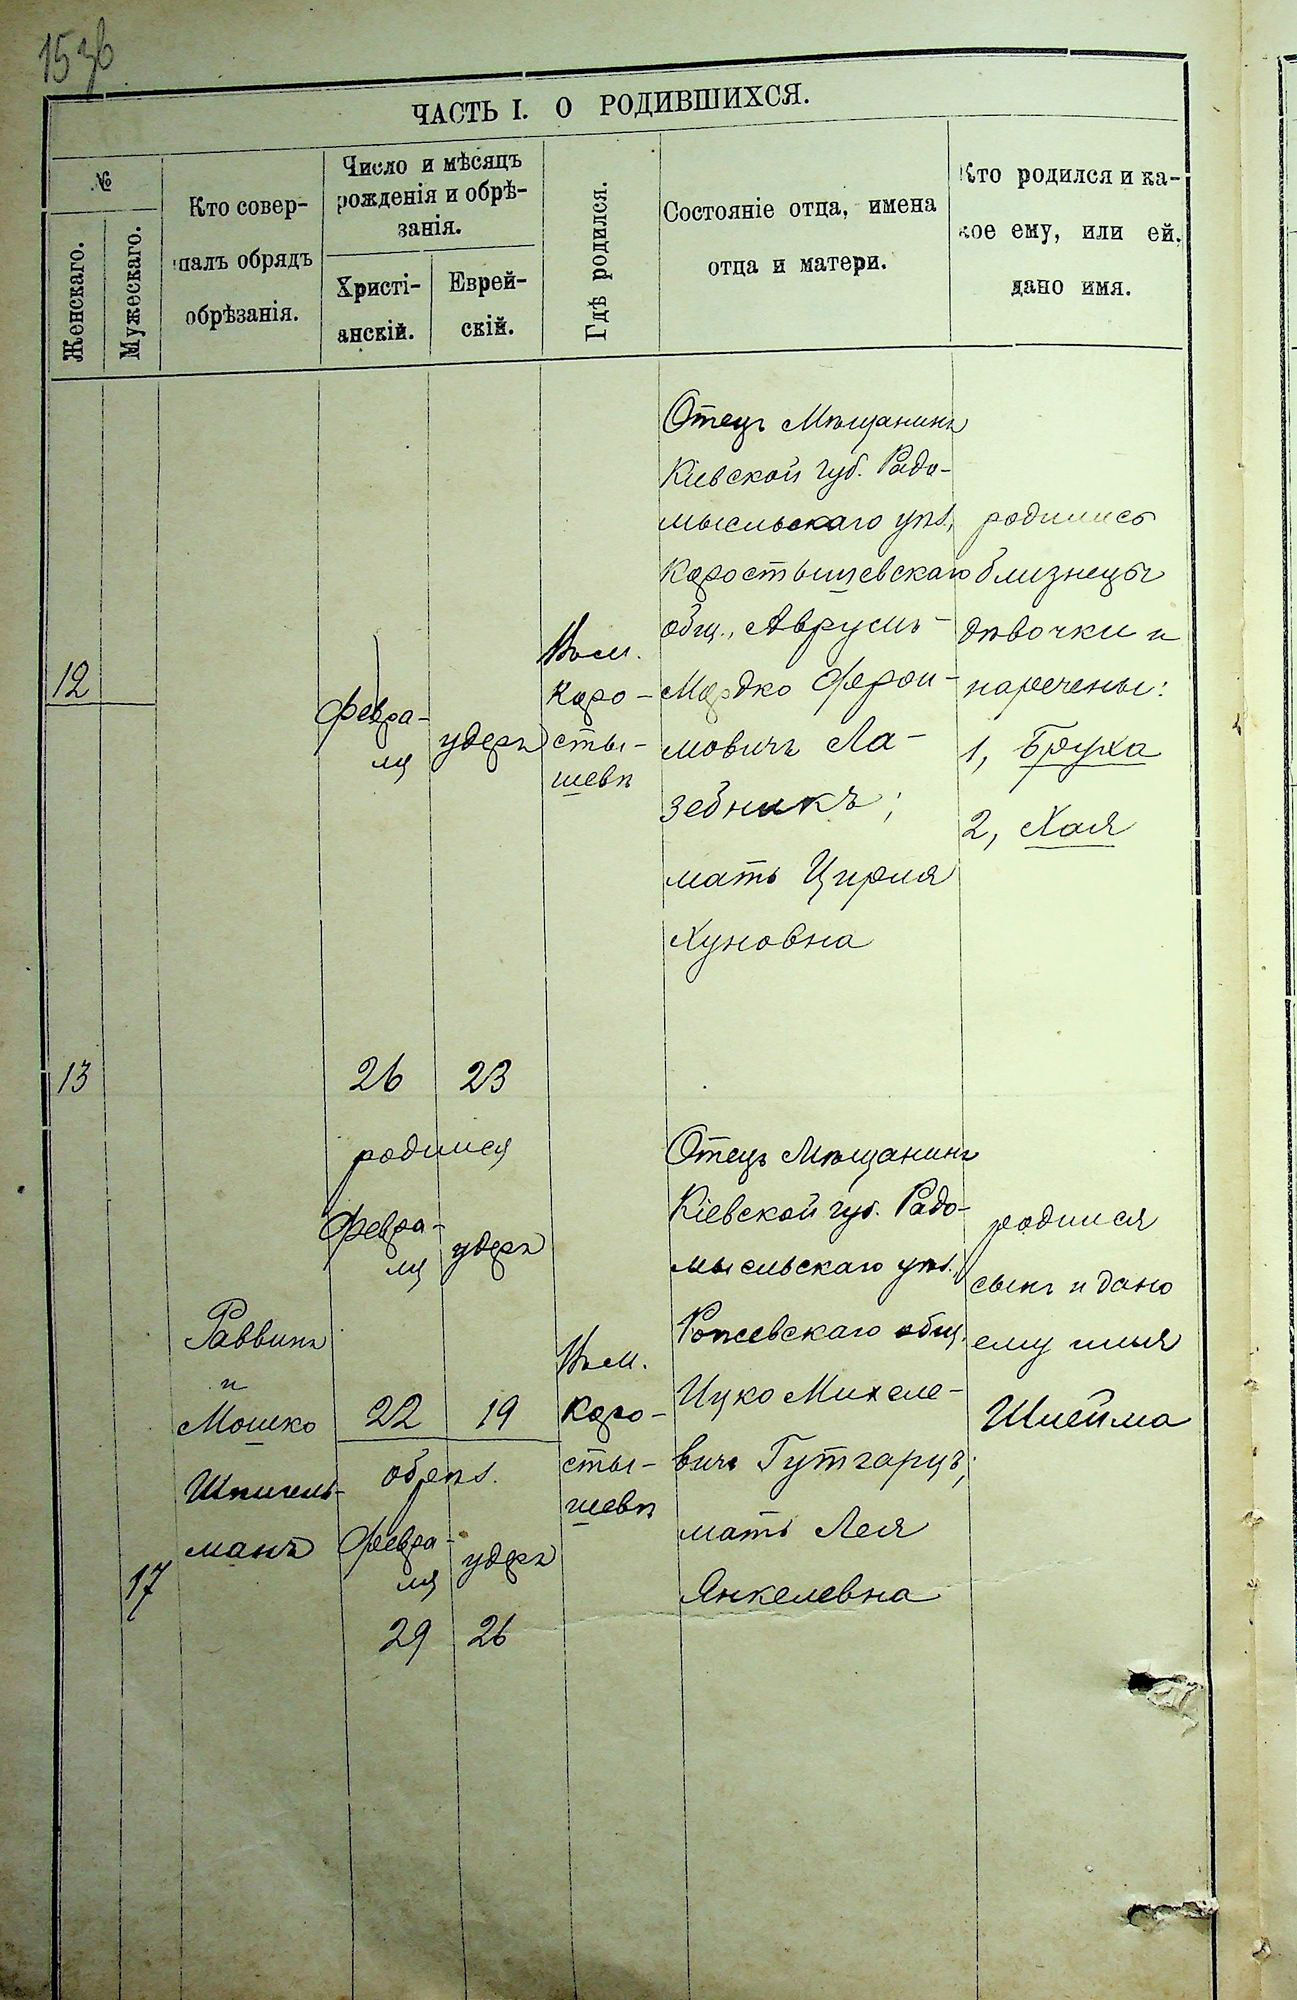 153б
ЧАСТЬ I. О РОДИВШИХСЯ.
№
Женскаго.
Мужескаго.
Кто совер-
шалъ обрядъ
обрѣзанія.
Число и мѣсяцъ
рожденія и обрѣ-
занія.
Христі-
анскій.
Еврей-
скій.
Гдѣ родился.
Состояніе отца, имена
отца и матери.
Кто родился и ка-
кое ему, или ей,
дано имя.
12
13
Февра-
ля
удеръ
26
23
Въ м.
Коро-
сты-
шевѣ
Отецъ Мѣщанинъ
Кіевской губ. Радо-
мысльскаго уѣз.
Коростышевскаго
общ., Аврумъ-
Мордко Фрои-
мовичъ Ла-
зебникъ;
мать Цирля
Хуновна
родились
близнецы
дѣвочки и
наречены:
1, Бруха
2, Хая
17
Раввинъ
и
Мошко
Шпигель-
манъ
родился
Февра-
ля
удеръ
22
19
обрѣз.
Февра-
ля
удеръ
29
26
Въ м.
Коро-
сты-
шевѣ
Отецъ Мѣщанинъ
Кіевской губ. Радо-
мысльскаго уѣз.,
общ.
Ицко Михеле-
вичъ Гутгарцъ;
мать Лея
Янкелевна
родился
сынъ и дано
ему имя
Шлейма